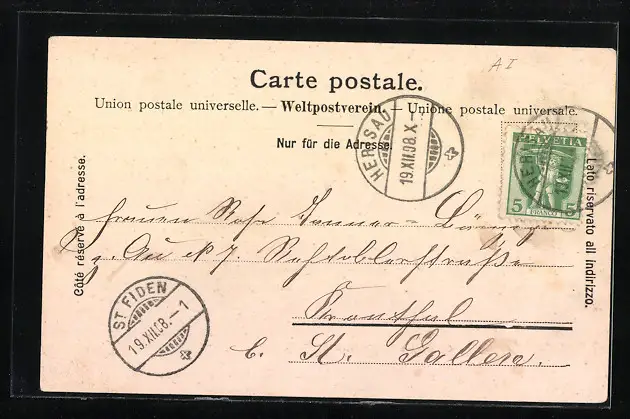 A I
Carte postale.
Union postale universelle. — Weltpostverein. — Unione postale universale.
Nur für die Adresse
Côté réservé à l'adresse.
Lato riservato all'indirizzo.
HERISAU
19.XII.08.X-
HELVETIA
5 FRANCO 5
HER
XII
Frauen Rosa
z. 
Kronthal
b. St. Gallen.
ST. FIDEN
19.XII.08.-1